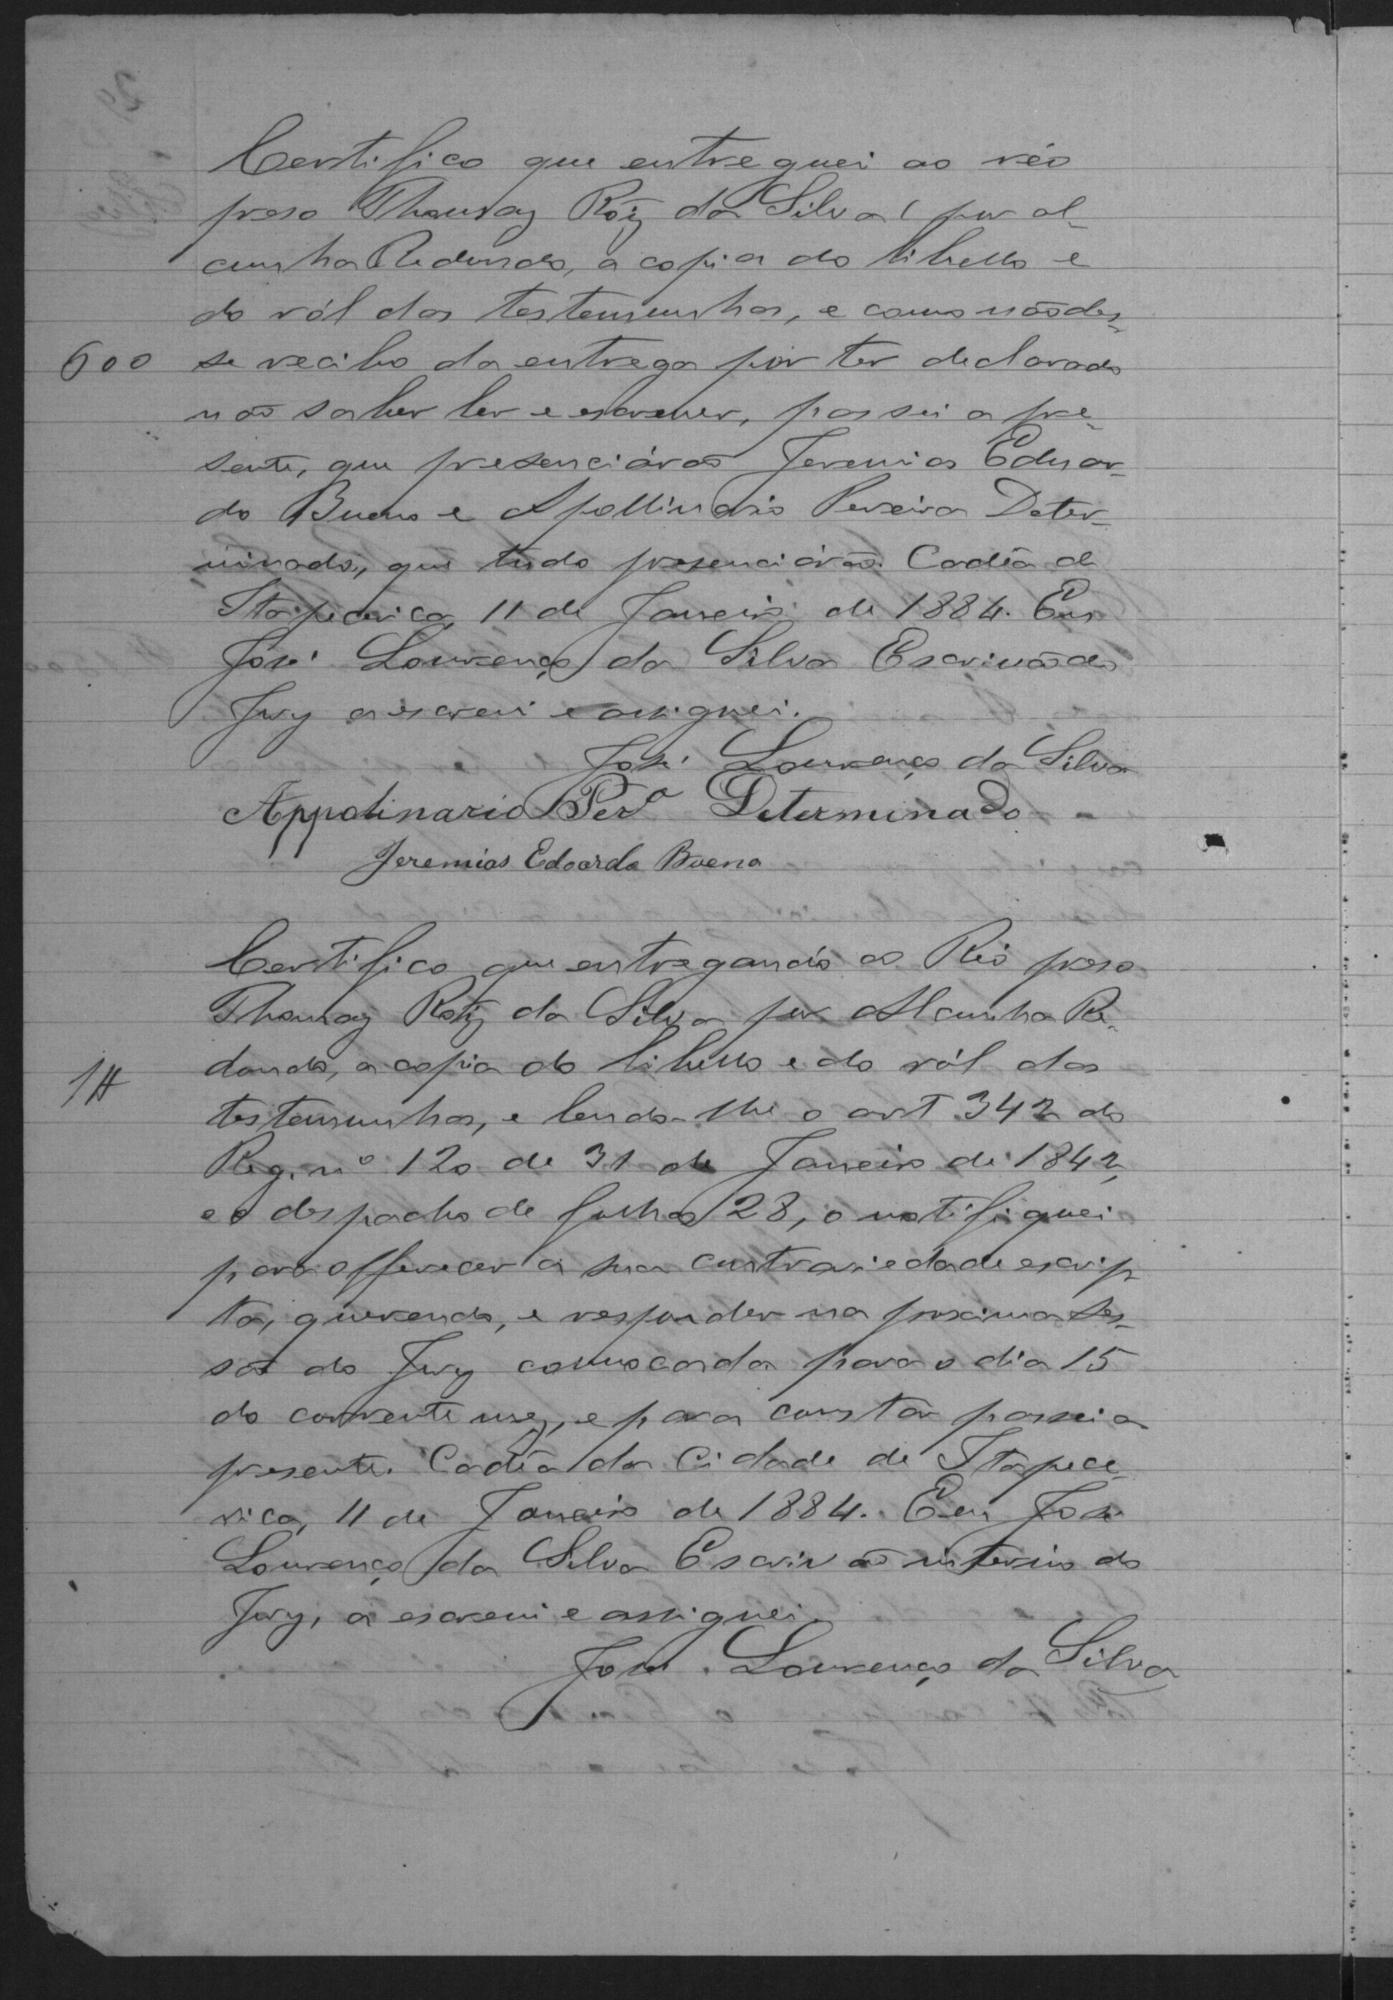 Certifico que entreguei ao réo
preso Thomaz Roiz da Silva, por al-
cunha Redondo, a copia do libello e
do ról das testemunhas, e como não des-
600 se recibo da entrega por ter declarado
não saber ler e escrever, passei a pre-
sente, que presenciárão Jeremias Eduar-
do Bueno e Apollinario Pereira Deter-
minado, que tudo presenciárão. Cadêa de
Itapecerica, 11 de Janeiro de 1884. Eu
José Lourenço da Silva Escrivão do
Jury a escrevi e assignei.
José Lourenço da Silva
Appolinario Per.ª Determinado
Jeremias Edoardo Bueno
Certifico que entregando ao Réo preso
Thomaz Roiz da Silva por Alcunha Re-
dondo, a copia do libello e do ról das
1$ testemunhas, e lendo-lhe o art 342 do
Reg. nº 120 de 31 de Janeiro de 1842,
e o despacho de folhas 28, o notifiquei
para offerecer a sua contrariedade escrip-
ta, querendo, e responder na proxima Ses-
são do Jury convocada para o dia 15
do corrente mez, e para constar passei a
presente. Cadêa da Cidade de Itapece-
rica, 11 de Janeiro de 1884. Eu José
Lourenço da Silva Escrivão interino do
Jury, a escrevi e assignei.
José Lourenço da Silva